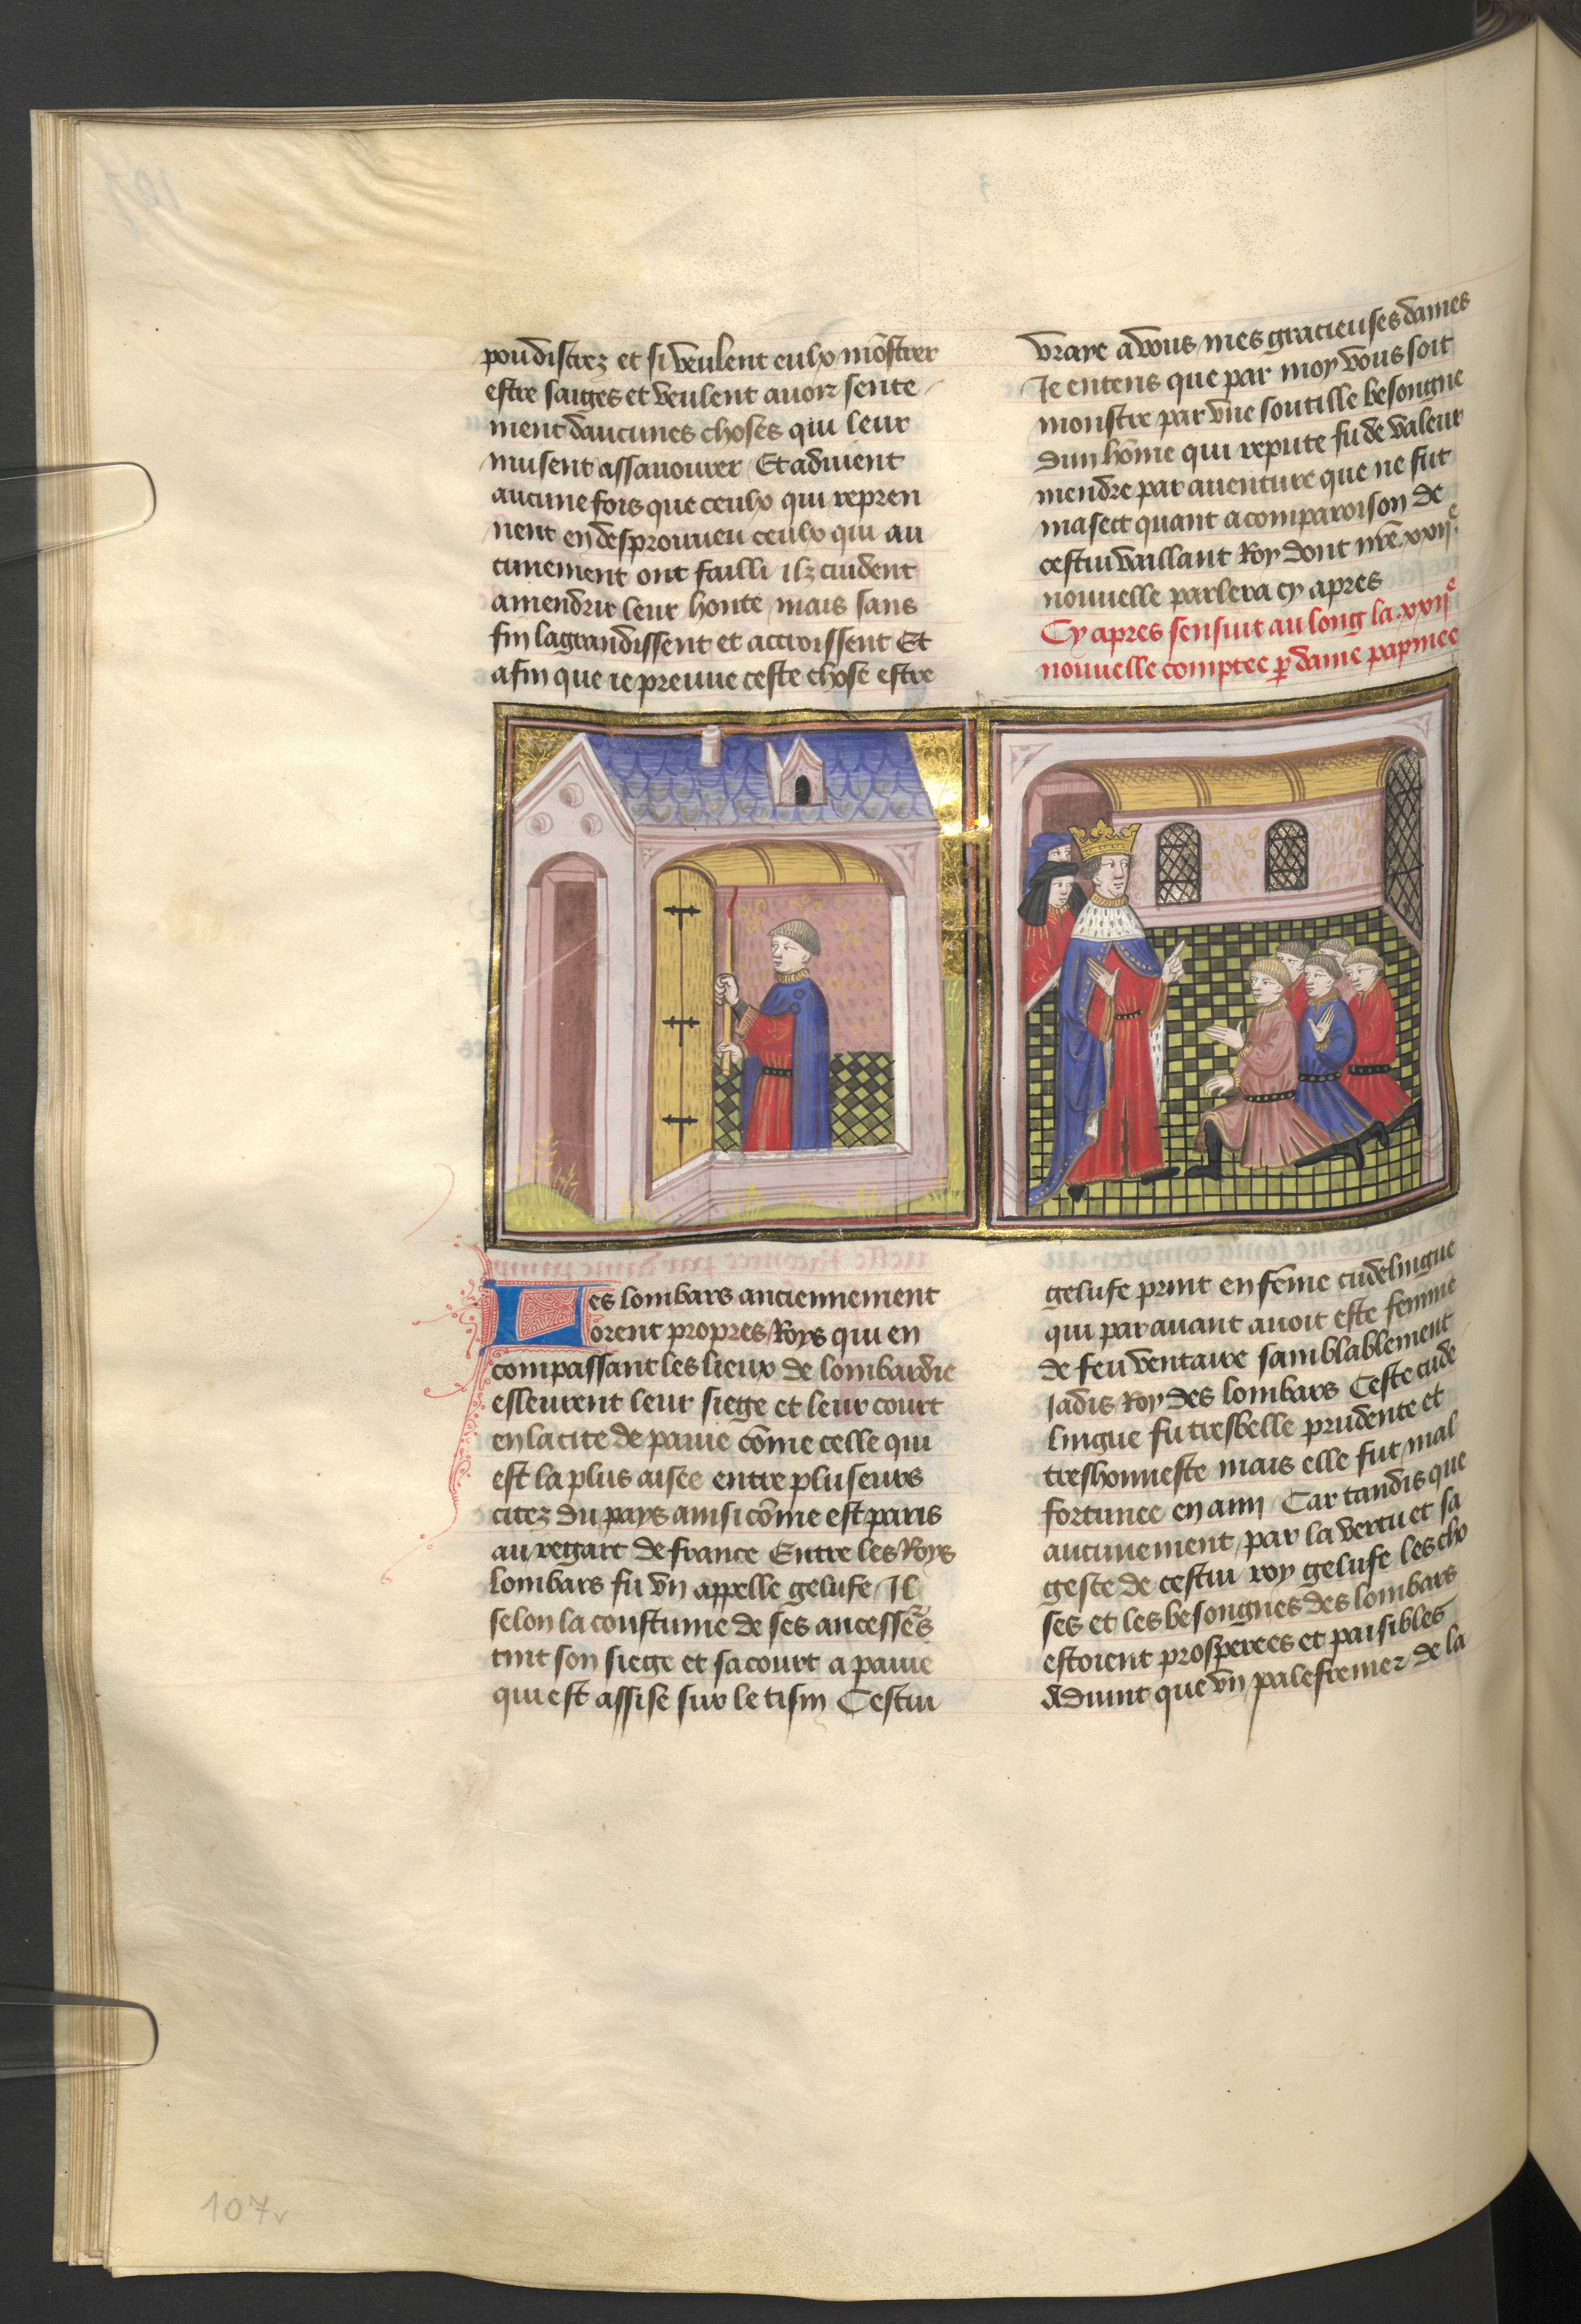 pou distrez et si veulent eulx mo̅strer
estre saiges et veulent auoir sente
ment daucunes choses qui leur
nuisent assauourer Et aduient
aucune fois que ceulx qui repren
nent en desprouueu ceulx qui au
cunement ont failli ilz cuident
amendrir leur honte mais sans
fin lagrandissent et accroissent Et
afin que ie preuue ceste chose estre
vraye a vous mes gracieuses dames
Je entens que par moy vous soit
monstre par vne soutille besongne
dun ho̅me qui repute fu de valeur
mendre par auenture que ne fut
masect quant a comparoison de
cestui vaillant Roy dont nr̅e xxii͛
nouuelle parlera cy apres
Cy apres sensuit au long la xxii͛
nouuelle comptee ꝑ dame papinee
Les lombars anciennement
orent propres Roys qui en
compassant les lieux de lombardie
esleurent leur siege et leur court
en la cite de pauie co̅me celle qui
est la plus aisee entre pluseurs
citez du pays ainsi co̅me est paris
au regart de france Entre les Roys
lombars fu vn appelle gelufe Il
selon la coustume de ses ancess̅e̅s
tint son siege et sa court a pauie
qui est assise sur le tisin Cestui
gelufe print en fe̅me cudelingue
qui par auant auoit este femme
de feu ventaire samblablement
Jadis Roy des lombars Ceste cude
lingue fu tresbelle prudente et
treshonneste mais elle fut mal
fortunee en ami Car tandis que
aucunement par la vertu et sa
geste de cestui roy gelufe les cho
ses et les besongnes des lombars
estoient prosperees et paisibles
Aduint que vn palefrenier de la
107v